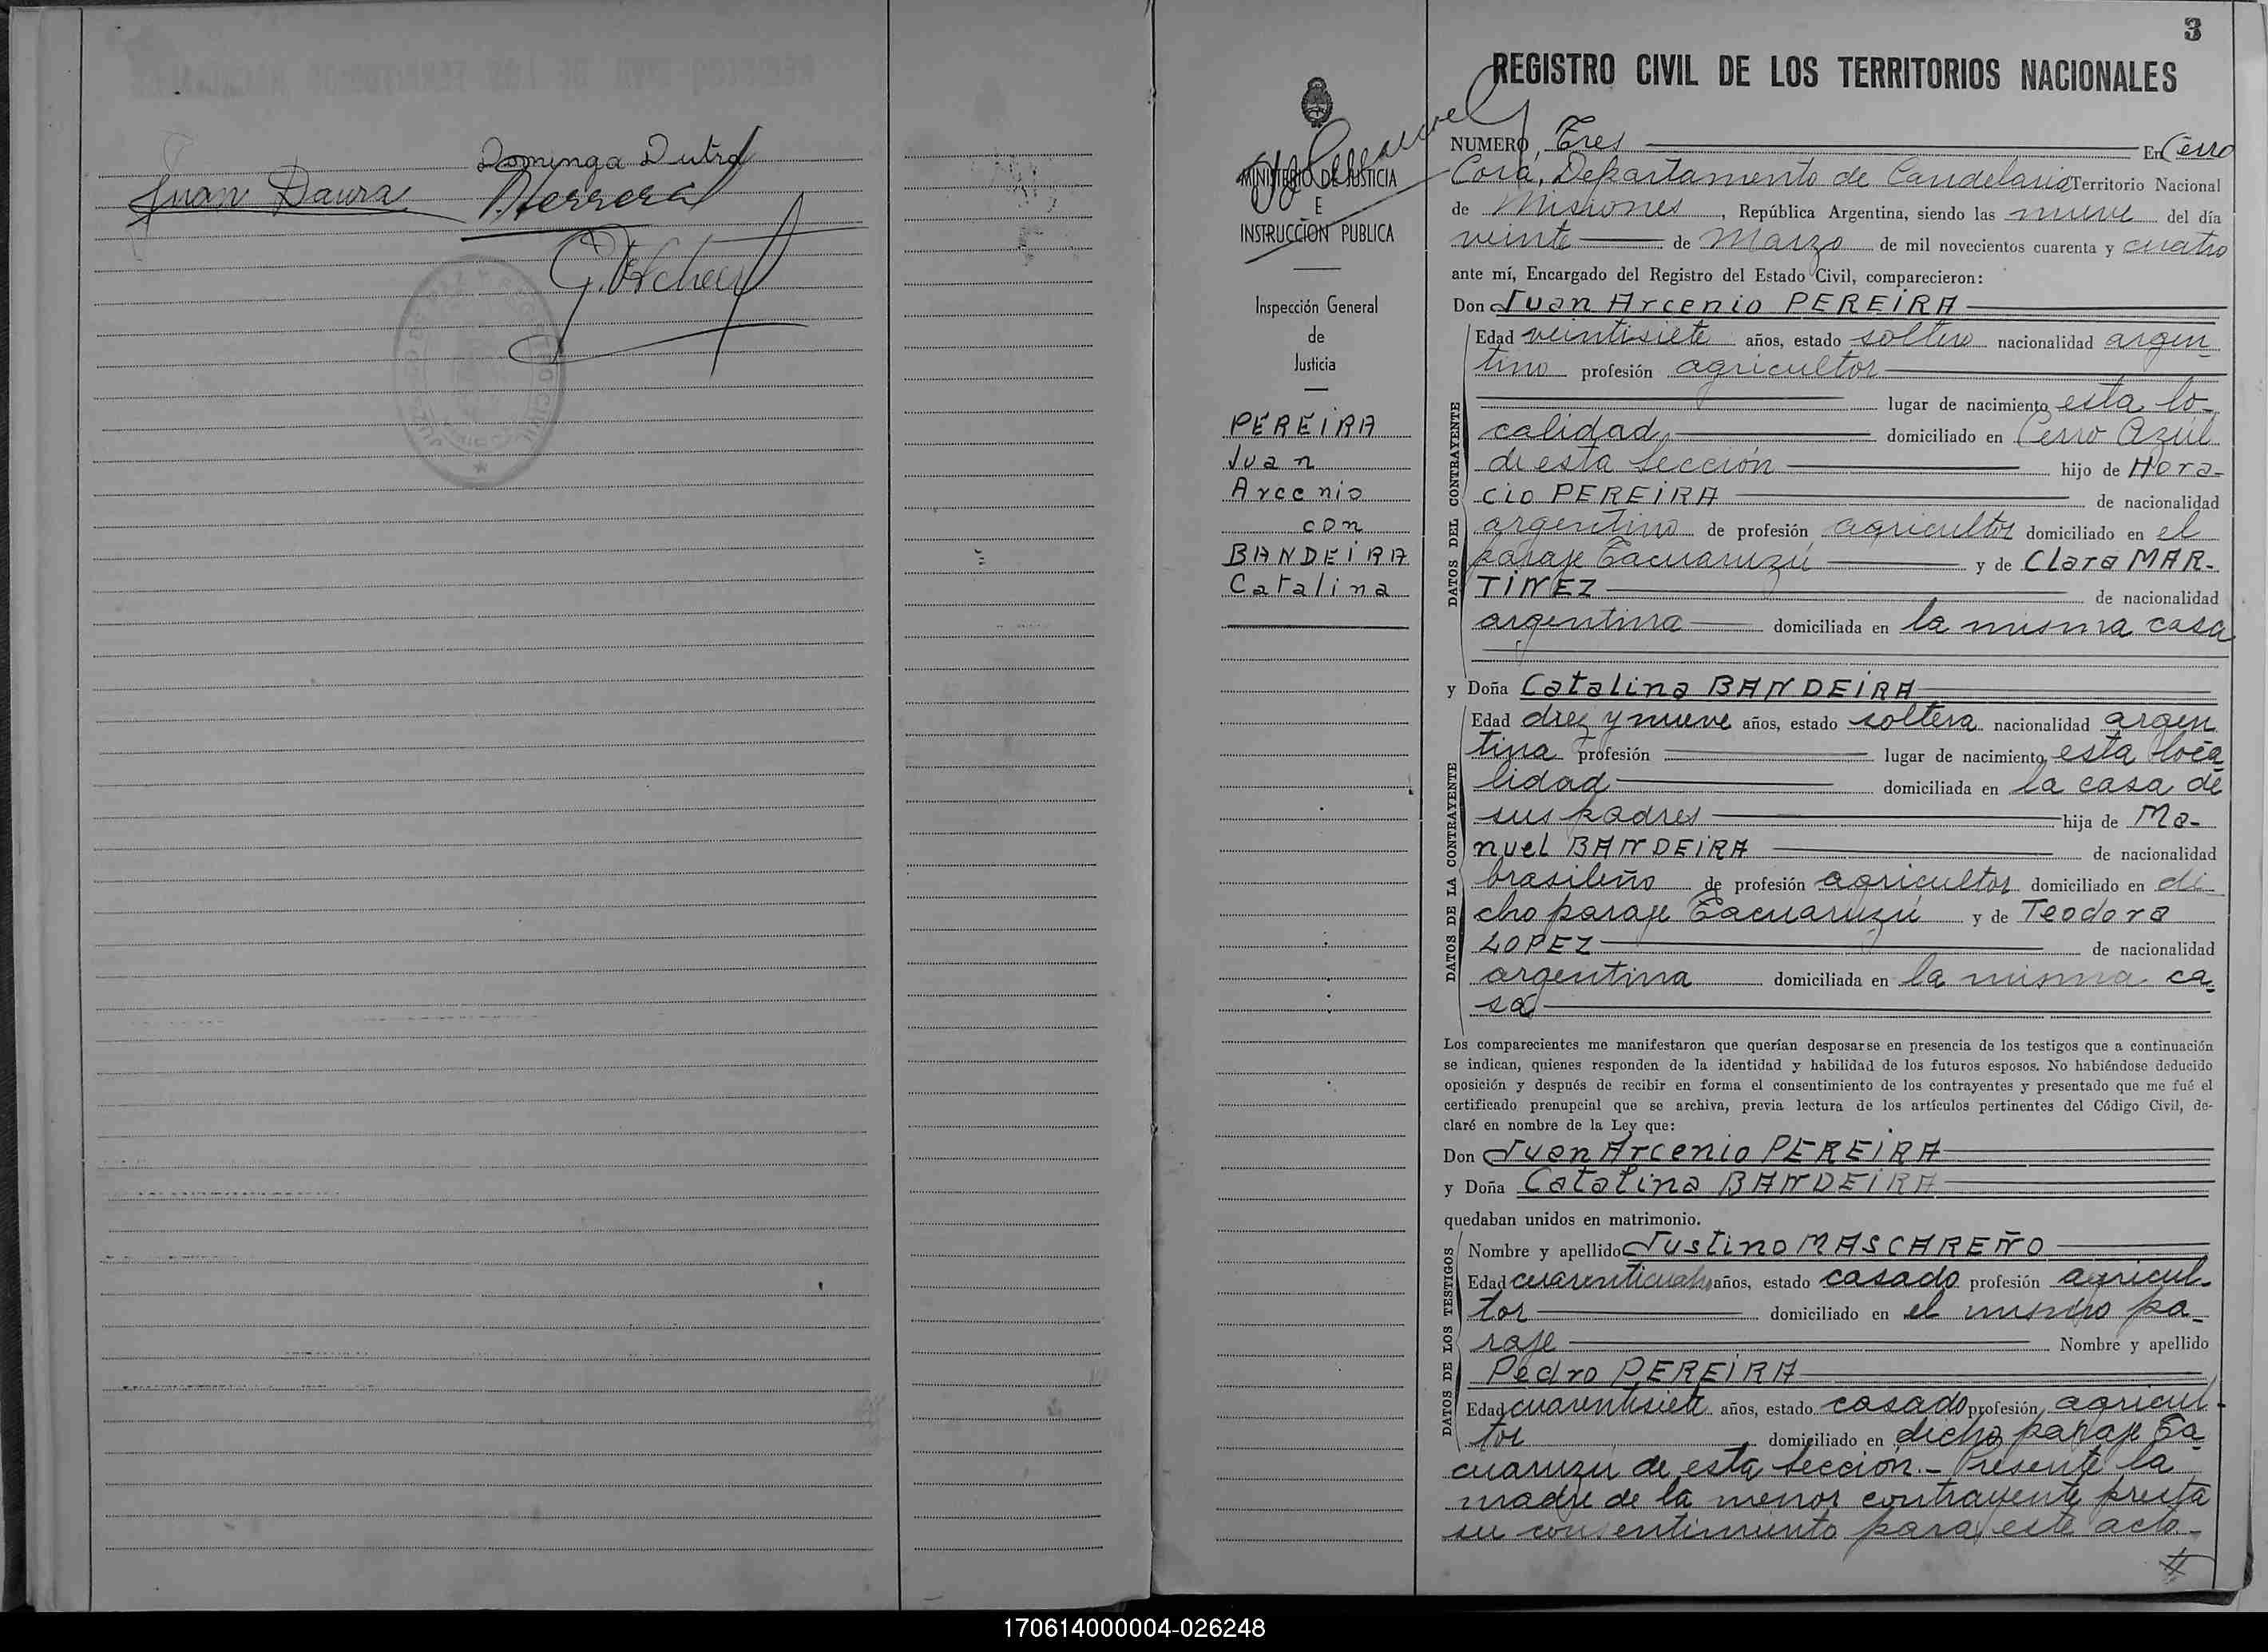 Dominga Dutra
Juan Daura
Herrera
3
REGISTRO CIVIL DE LOS TERRITORIOS NACIONALES
MINISTERIO DE JUSTICIA
E
INSTRUCCIÓN PUBLICA
Inspección General
de
Justicia
PEREIRA
Juan
Arcenio
con
BANDEIRA
Catalina
NUMERO Tres En Cerro
Corá, Departamento de Candelaria Territorio Nacional
de Misiones, República Argentina, siendo las nueve del día
veinte de Marzo de mil novecientos cuarenta y cuatro
ante mí, Encargado del Registro del Estado Civil, comparecieron:
Don Juan Arcenio PEREIRA
DATOS DEL CONTRAYENTE
Edad veintisiete años, estado soltero nacionalidad argen
tino profesión agricultor
lugar de nacimiento esta lo-
calidad domiciliado en Cerro Azul
de esta Sección hijo de Hora-
cio PEREIRA de nacionalidad
argentino de profesión agricultor domiciliado en el
paraje Tacuaruzú y de Clara MAR-
TINEZ de nacionalidad
argentina domiciliada en la misma casa
y Doña Catalina BANDEIRA
DATOS DE LA CONTRAYENTE
Edad diez y nueve años, estado soltera nacionalidad argen
tina profesión lugar de nacimiento esta loca
lidad domiciliada en la casa de
sus padres hija de Ma-
nuel BANDEIRA de nacionalidad
brasileño de profesión agricultor domiciliado en di
cho paraje Tacuaruzú y de Teodora
LOPEZ de nacionalidad
argentina domiciliada en la misma ca-
sa
Los comparecientes me manifestaron que querían desposarse en presencia de los testigos que a continuación
se indican, quienes responden de la identidad y habilidad de los futuros esposos. No habiéndose deducido
oposición y después de recibir en forma el consentimiento de los contrayentes y presentado que me fué el
certificado prenupcial que se archiva, previa lectura de los artículos pertinentes del Código Civil, de-
claré en nombre de la Ley que:
Don Juan Arcenio PEREIRA
y Doña Catalina BANDEIRA
quedaban unidos en matrimonio.
DATOS DE LOS TESTIGOS
Nombre y apellido Justino MASCAREÑO
Edad cuarenticuatro años, estado casado profesión agricul-
tor domiciliado en el mismo pa-
raje Nombre y apellido
Pedro PEREIRA
Edad cuarentisiete años, estado casado profesión agricul-
tor domiciliado en dicho paraje Ta-
cuaruzú de esta Sección.- Presente la
madre de la menor contrayente presta
su consentimiento para este acto-
170614000004-026248